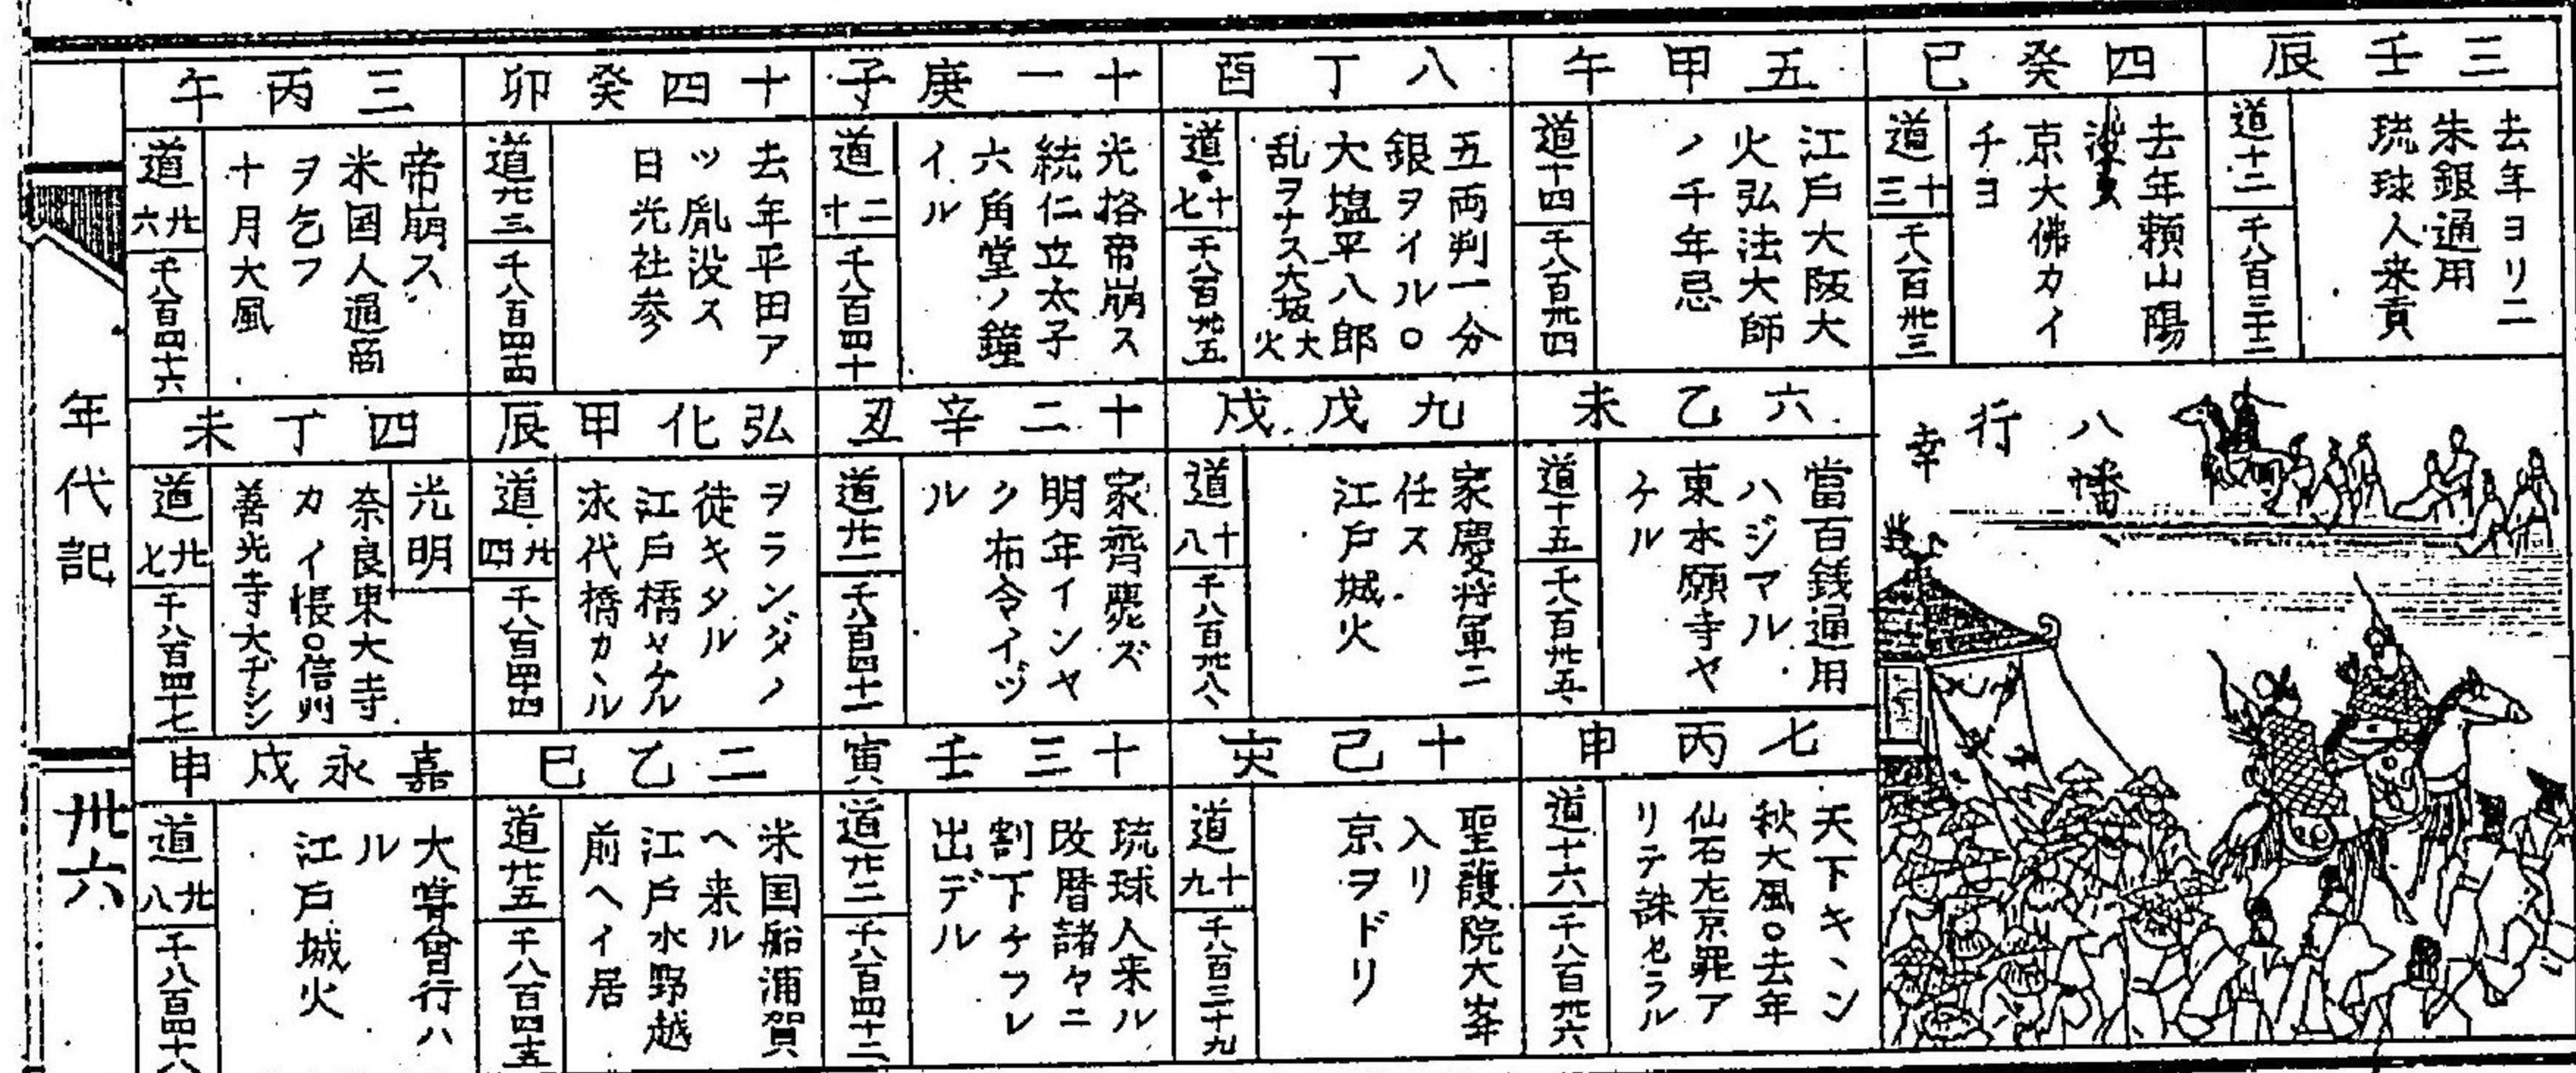 三壬辰
去年ヨリ二
朱銀通用
琉球人来貢
道十二
千八百三十二
四癸巳
去年頼山陽
没
京大佛カイ
チヨ
道十三
千八百卅三
八幡
行幸
五甲午
江戸大阪大
火弘法大師
ノ千年忌
道十四
千八百卅四
六乙未
當百銭通用
ハジマル
東本願寺ヤ
ケル
道十五
千八百卅五
七丙申
天下キヽン
秋大風○去年
仙石左京罪ア
リテ誅セラル
道十六
千八百卅六
八丁酉
五両判一分
銀ヲイル○
大塩平八郎
乱ヲナス大坂大火
道十七
千八百卅五
九戊戌
家慶将軍ニ
任ス
江戸城火
道十八
千八百卅八
十己亥
聖護院大峯
入リ
京ヲドリ
道十九
千八百三十九
十一庚子
光格帝崩ス
統仁立太子
六角堂ノ鐘
イル
道二十
千八百四十
十二辛丑
家齊薨ズ
明年インヤ
ク布令イヅ
ル
道廿一
千八百四十一
十三壬寅
琉球人来ル
改暦諸々ニ
割下ケフレ
出デル
道廿二
千八百四十二
十四癸卯
去年平田ア
ツ胤没ス
日光社参
道廿三
千八百四十
弘化甲辰
ヲランダノ
徒キタル
江戸橋ヤケル
永代橋カヽル
道廿四
千八百四十四
二乙巳
米国船浦賀
ヘ来ル
江戸水野越
前ヘイ居
道廿五
千八百四十五
三丙午
帝崩ス
米国人通商
ヲ乞フ
十月大風
道廿六
千八百四十六
四丁未
光明
奈良東大寺
カイ帳○信州
善光寺大ヂシン
道廿七
千八百四十七
嘉永戊申
大嘗會行ハ
ル
江戸城火
道廿八
千八百四十八
年代記
卅六